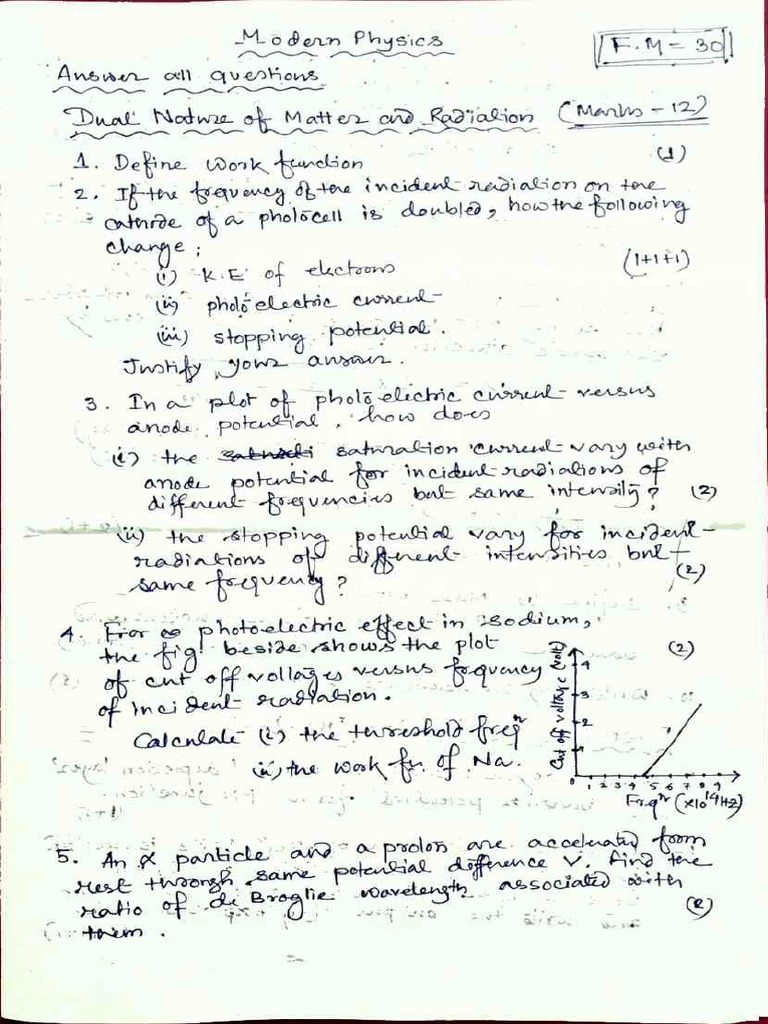 Modern Physics
F.M = 30
Answer all questions
Dual Nature of Matter and Radiation (Marks - 12)
1. Define work function (1)
2. If the frequency of the incident radiation on the
cathode of a photocell is doubled, how the following
change ; (1+1+1)
(i) K.E of electrons
(ii) photoelectric current
(iii) stopping potential.
Justify your answer.
3. In a plot of photoelectric current versus
anode potential, how does
(i) the saturation current vary with
anode potential for incident radiations of
different frequencies but same intensity? (2)
(ii) the stopping potential vary for incident
radiations of different intensities but
same frequency? (2)
4. For photoelectric effect in sodium,
the fig. beside shows the plot (2)
of cut off voltages versus frequency
of incident radiation.
Calculate (i) the threshold freqn
(ii) the work fn. of Na.
Cut off voltage (volt)
4
3
2
1
1 2 3 4 5 6 7 8 9
Freqn (×10^14 Hz)
5. An α particle and a proton are accelerated from
rest through same potential difference V. find the
ratio of de Broglie wavelength associated with
them. (2)